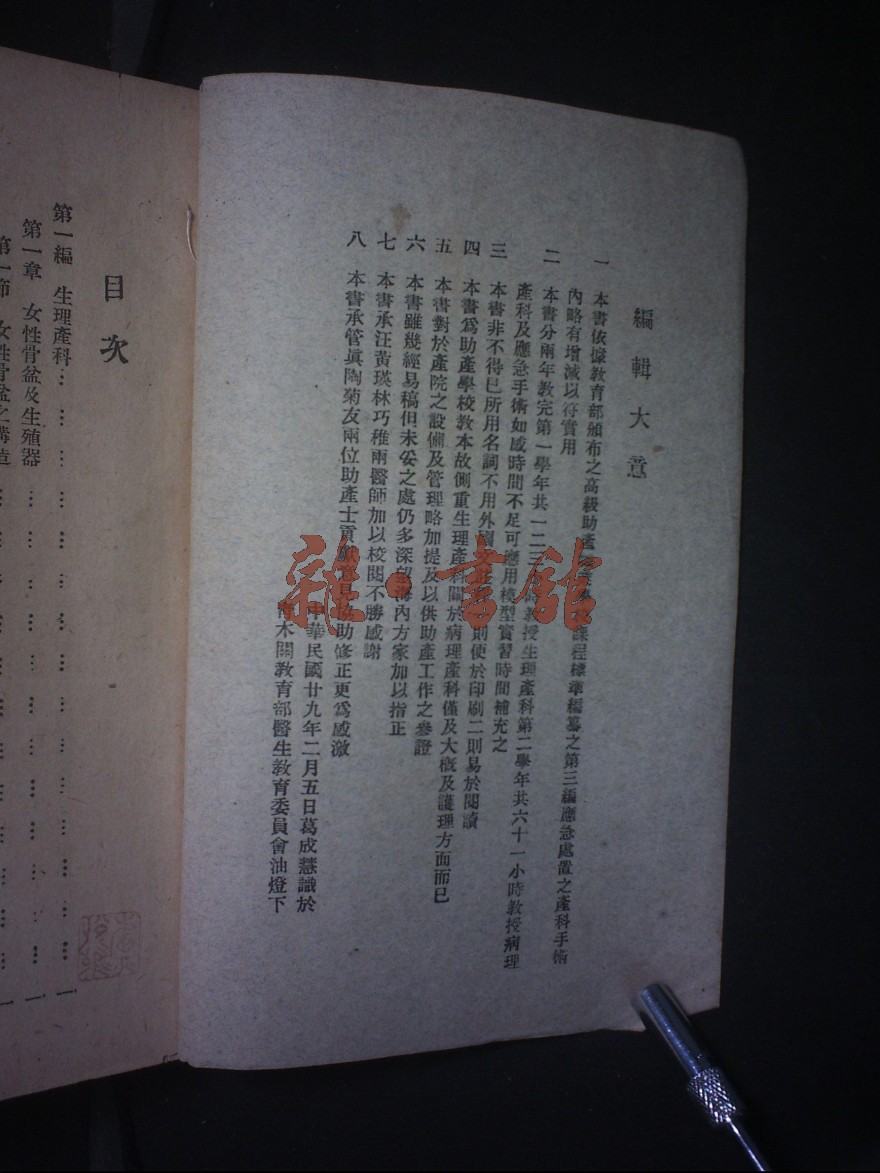 編輯大意
一 本書依據教育部頒布之高級助產 課程標準編纂之第三編應急處置之產科手術
內略有增減以符實用
二 本書分兩年教完第一學年共一二三 教授生理產科第二學年共六十一小時教授病理
產科及應急手術如感時間不足可應用模型實習時間補充之
三 本書非不得已所用名詞不用外國文 則便於印刷二則易於閱讀
四 本書為助產學校教本故側重生理產科關於病理產科僅及大概及護理方面而已
五 本書對於產院之設備及管理略加提及以供助產工作之參證
六 本書雖幾經易稿但未妥之處仍多深望海內方家加以指正
七 本書承汪黃瑛林巧稚兩醫師加以校閱不勝感謝
八 本書承管真陶菊友兩位助產士貢獻意見協助修正更為感激
中華民國廿九年二月五日葛成慧識於
青木關教育部醫生教育委員會油燈下
目次
第一編 生理產科
第一章 女性骨盆及生殖器
第一節 女性骨盆之構造
雜·書館